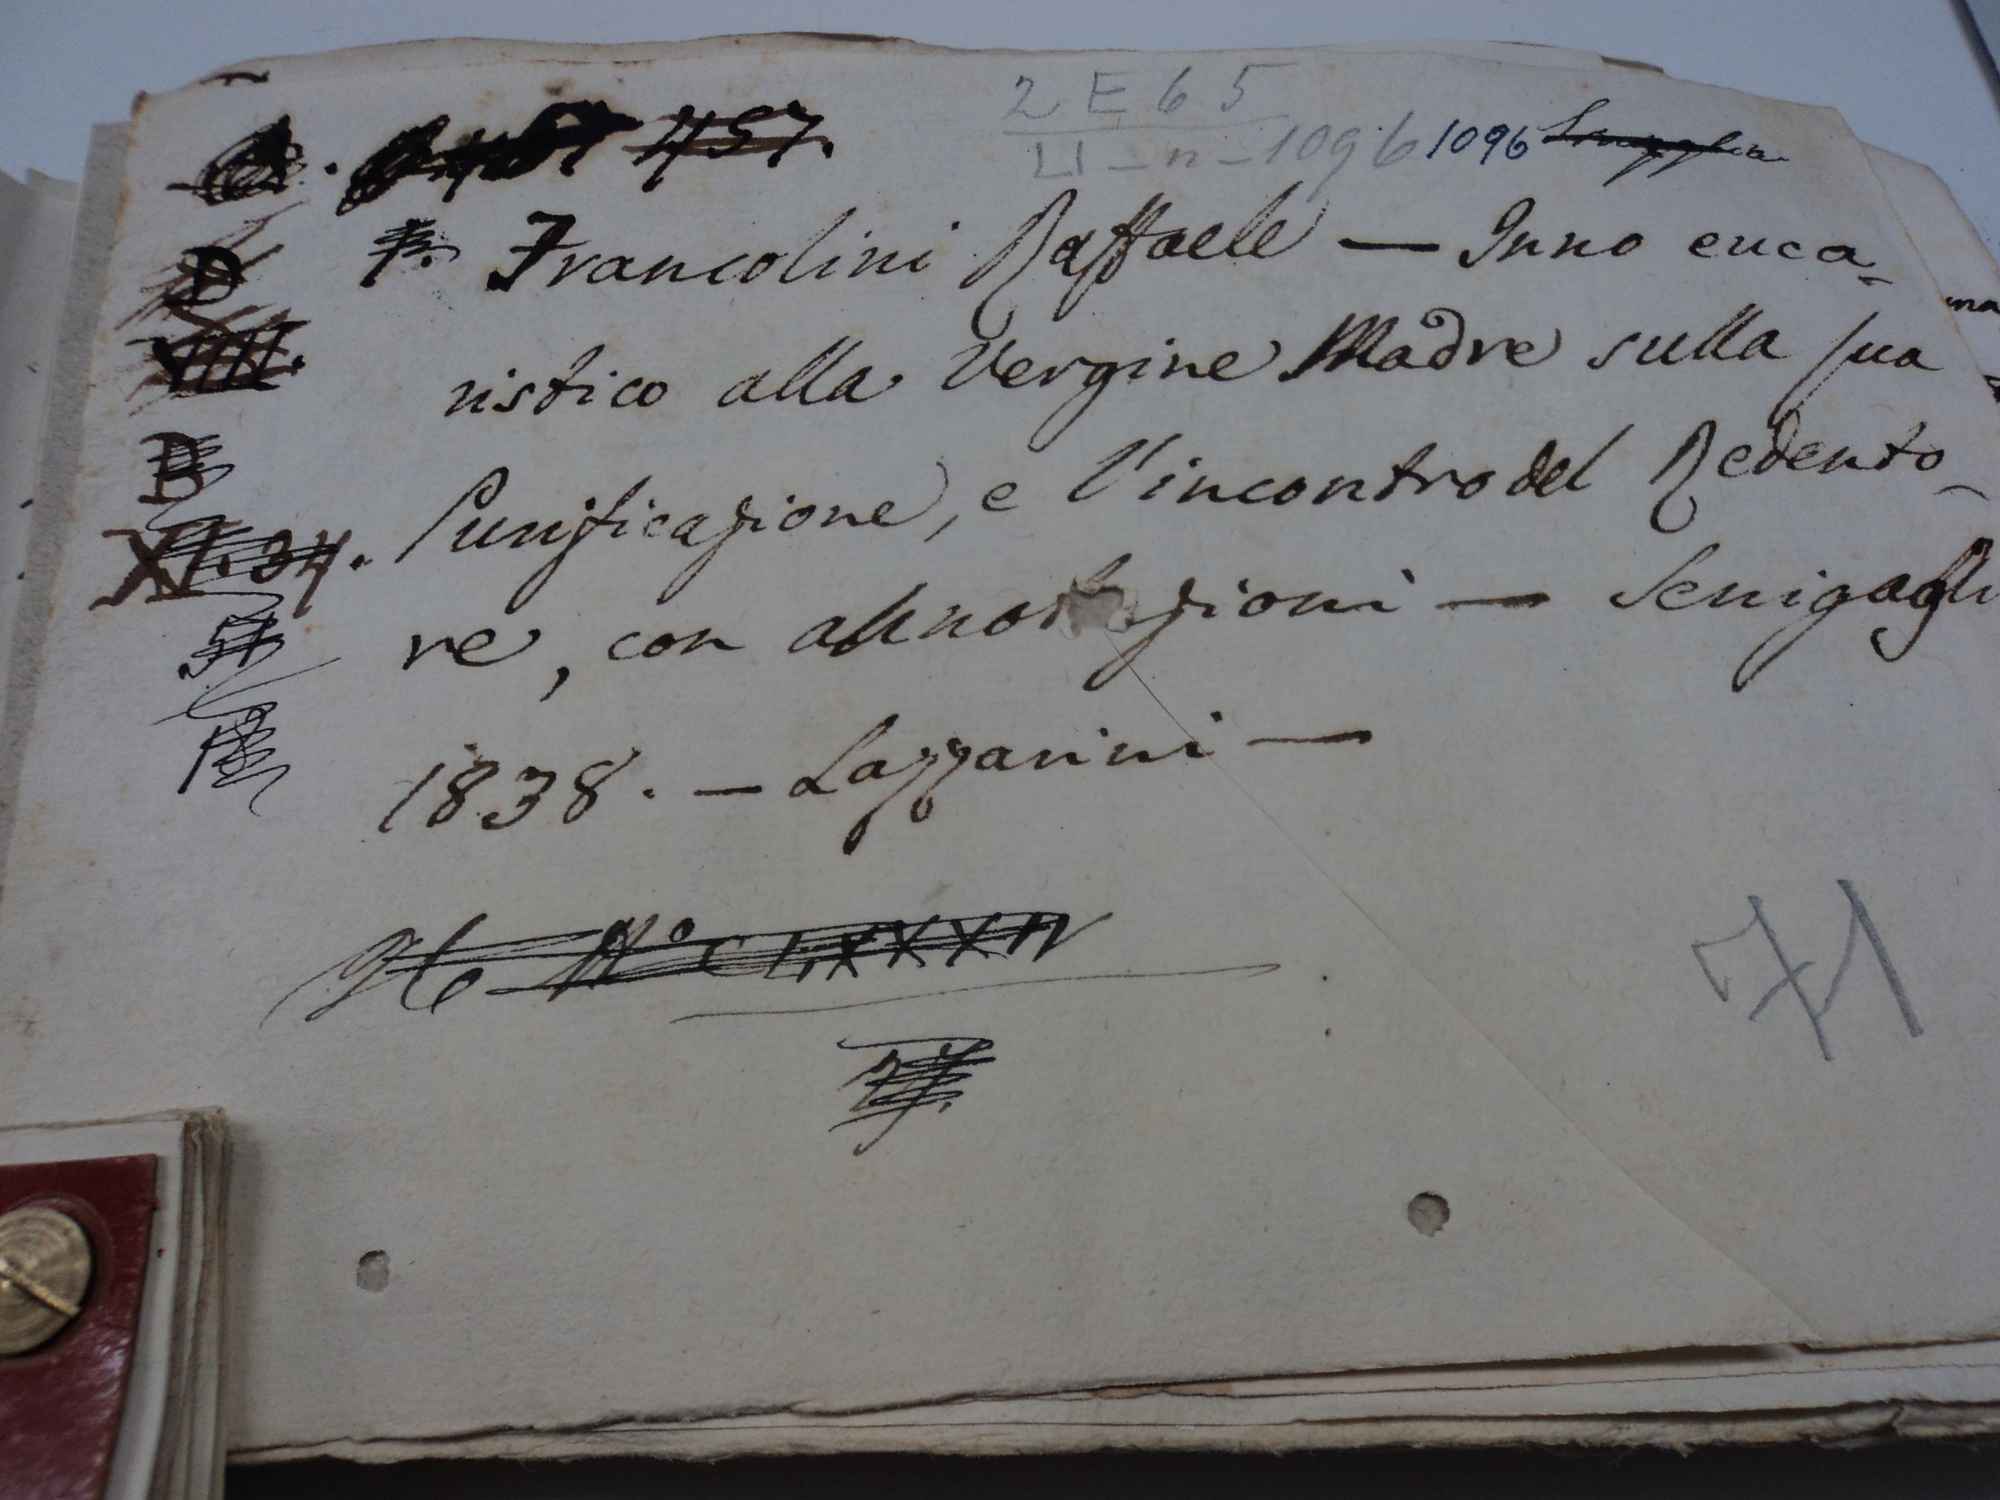 457.
2 E 65
LI - n - 1096 1096
Francolini Raffaele — Inno euca-
ristico alla Vergine Madre sulla sua
Purificazione, e l'incontro del Redento-
re, con annotazioni — Senigagli
1838. — Lazzarini —
D
VIIII.
D
XI. 34.
No CLXXXIV
71